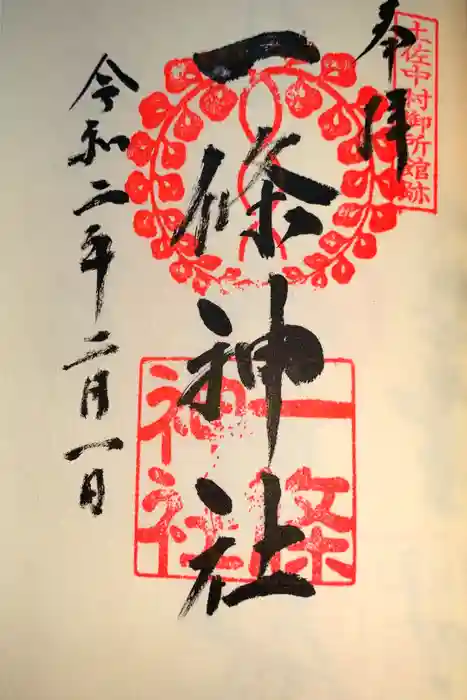 奉拝
土佐中村御所館跡
一條神社
一條
神社
令和二年二月一日